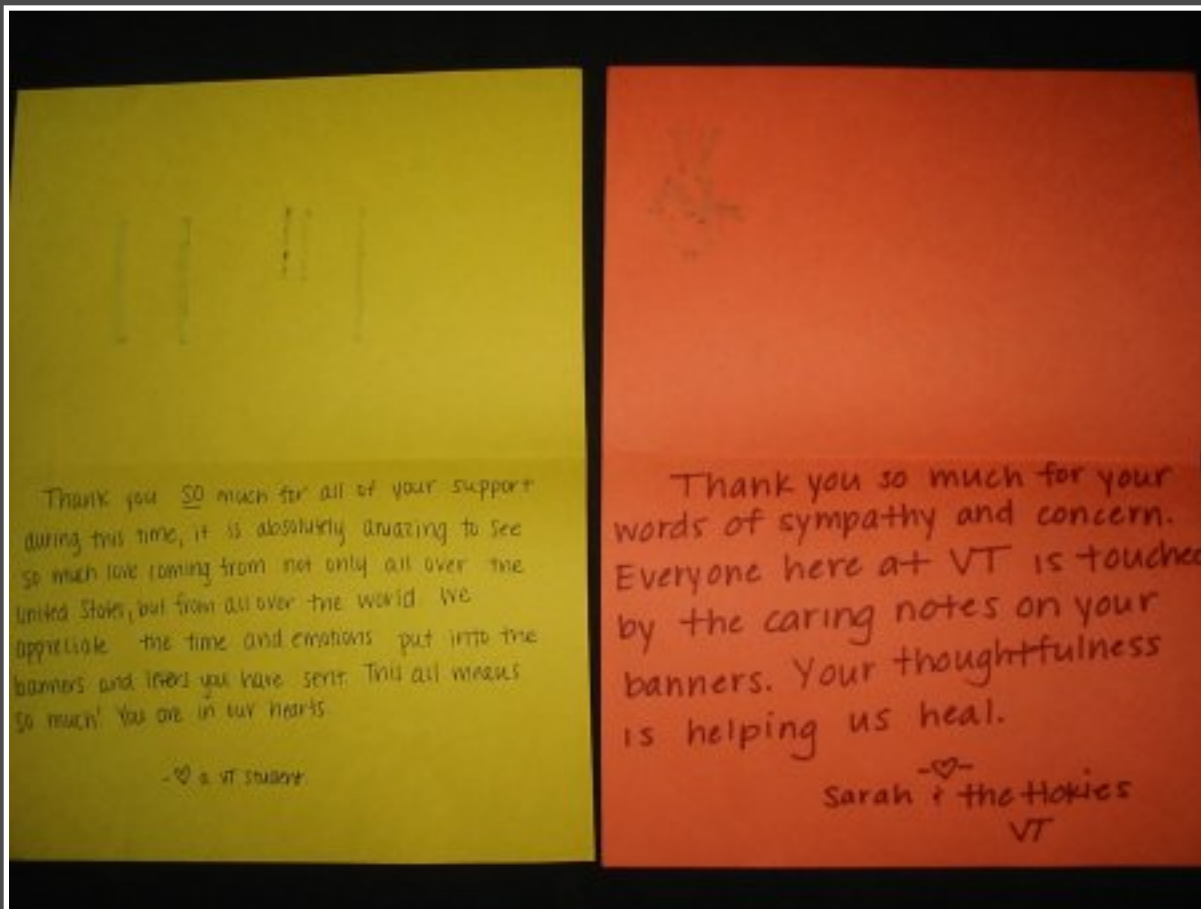 Thank you SO much for all of your support
during this time, it is absolutely amazing to see
so much love coming from not only all over the
United States, but from all over the world. We
appreciate the time and emotions put into the
banners and letters you have sent. This all means
so much! You are in our hearts.
-♡ a VT student
Thank you so much for your
words of sympathy and concern.
Everyone here at VT is touched
by the caring notes on your
banners. Your thoughtfulness
is helping us heal.
-♡-
Sarah & the Hokies
VT